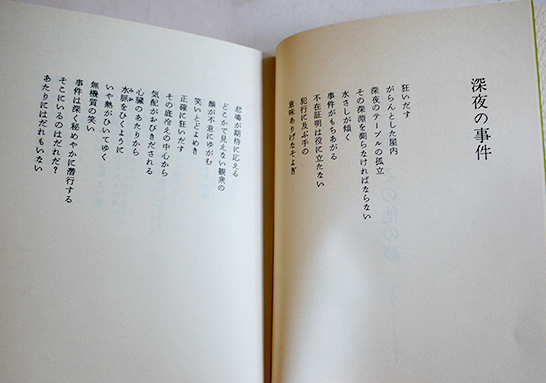 深夜の事件
狂いだす
がらんとした屋内
深夜のテーブルの孤立
その深淵を測らなければならない
水さしが傾く
事件がもちあがる
不在証明は役に立たない
犯行に及ぶ手の
意味ありげなそよぎ
悲鳴が期待に応える
どこかで見えない観客の
顔が不意にゆがむ
笑いとどよめき
正確に狂いだす
その底冷えの中心から
気配がおびきだされる
心臓のあたりから
水脈をひくように
いや熱がひいてゆく
無機質の笑い
事件は深く秘めやかに潜行する
そこにいるのはだれだ?
あたりにはだれもいない